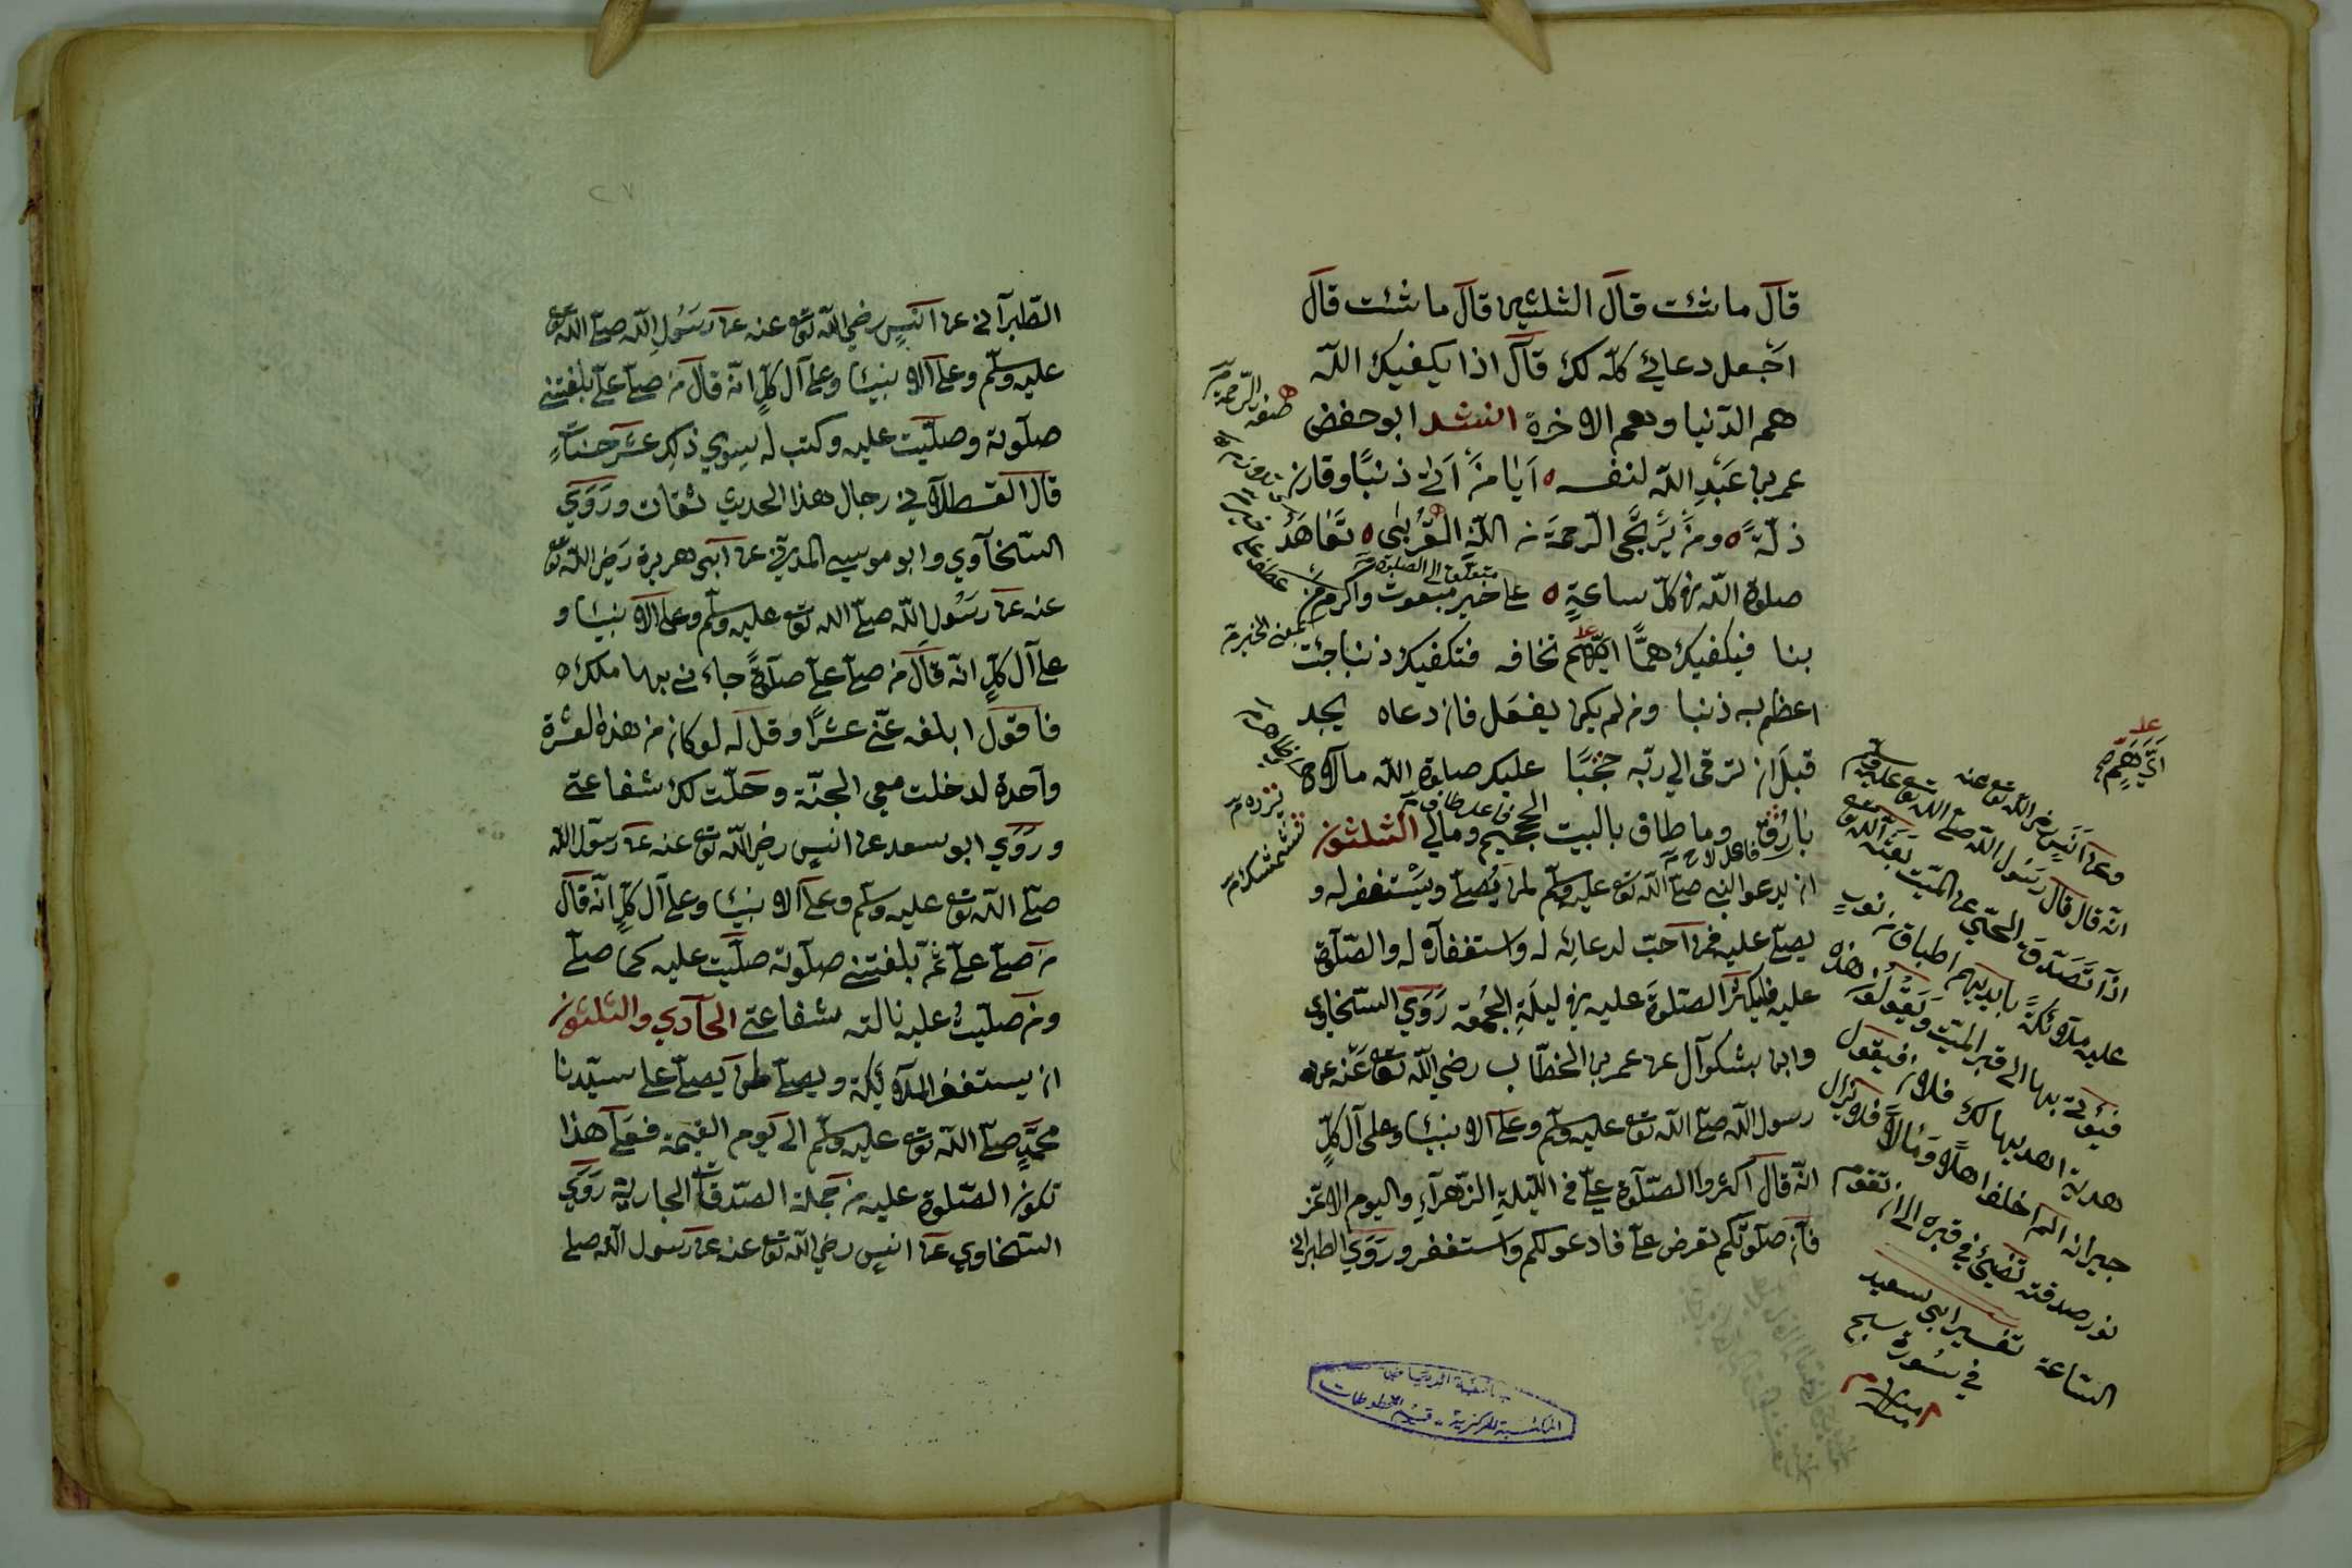 قال ما شئت قال الثلثين قال ما شئت قال
اجعل دعائي كله لك قال اذا يكفيك الله
هم الدنيا وهم الاخرة انشد ابو حفض
عمر بن عبد الله لنفسه ايا من اتى ذنبا وقارن
زلة ومن يرتجى الرحمة من الله القربى تعاهد
صلوة الله في كل ساعة على خير مبعوث واكرم من
بنا فيكفيك هما اي هم تخافه فتكفيك ذنبا جئت
اعظم به ذنبا ومن لم يكن يفعل فان دعاه يجد
قبل ان ترقى الى ربه حجبا عليك صلوة الله ما لاح
بارق وما طاف بالبيت الحجيج وما لبى الثلثون
ان يدعو النبي صلى الله تع عليه وسلم لمن يصلى ويستغفر له و
يصلى عليه فمن احب لدعائه له واستغفاره له والصلوة
عليه فليكثر الصلوة عليه في ليلة الجمعة روى السخاوي
وابن بشكوال عن عمر بن الخطاب رضي الله تع عنه عن
رسول الله صلى الله تع عليه وسلم وعلى الانبيئا وعلى آل كل
انه قال اكثروا الصلوة على في الليلة الزهراء واليوم الاغر
فان صلوتكم تعرض على فادعو لكم واستغفر وروى الطبراني
متعلق الى الصلوة
فاعل لاح
عطف على خير
اي هم
وعن انس رضى الله تع عنه
انه قال قال رسول الله صلى الله تع عليه وسلم
اذا تصدق الحى عن الميت بعث الله تع
عليه ملائكة بايديهم اطباق من نور
فيؤتى بها الى قبر الميت ويقولون هذه
هدية اهديها لك فلان فيقول
جيرانه
نور صدقته تضيئ في قبره الى ان تقوم
الساعة تفسير ابى سعيد
في سورة سبح
المكتبة المركزية - قسم المخطوطات
٢٧
الطبراني عن انس رضي الله تع عنه عن رسول الله صلى الله تع
عليه وسلم وعلى الانبيئا وعلى آل كل انه قال من صلى على بلغتني
صلوته وصليت عليه وكتب له سوى ذلك عشر حسنات
قال القسطلاني رجال هذا الحديث ثقات وروى
السخاوي وابو موسى المديني عن ابى هريرة رضى الله تع
عنه عن رسول الله صلى الله تع عليه وسلم وعلى الانبيئا و
على آل كل انه قال من صلى على صلوة جاءني بها ملك
فاقول ابلغه عني عشرا وقل له لو كان من هذه العشرة
واحدة لدخلت معى الجنة وحلت لك شفاعتي
وروى ابو سعد عن انس رضي الله تع عنه عن رسول الله
صلى الله تع عليه وسلم وعلى الانبيئا وعلى آل كل انه قال
من صلى على ثم بلغتني صلوته صليت عليه كما صلى
ومن صليت عليه نالته شفاعتي الحادي والثلثون
ان يستغفر الملائكة ويصلى لمن يصلى على سيدنا
محمد صلى الله تع عليه وسلم الى يوم القيمة فعلى هذا
تكون الصلوة عليه من جملة الصدقات الجارية روى
السخاوي عن انس رضي الله تع عنه عن رسول الله صلى